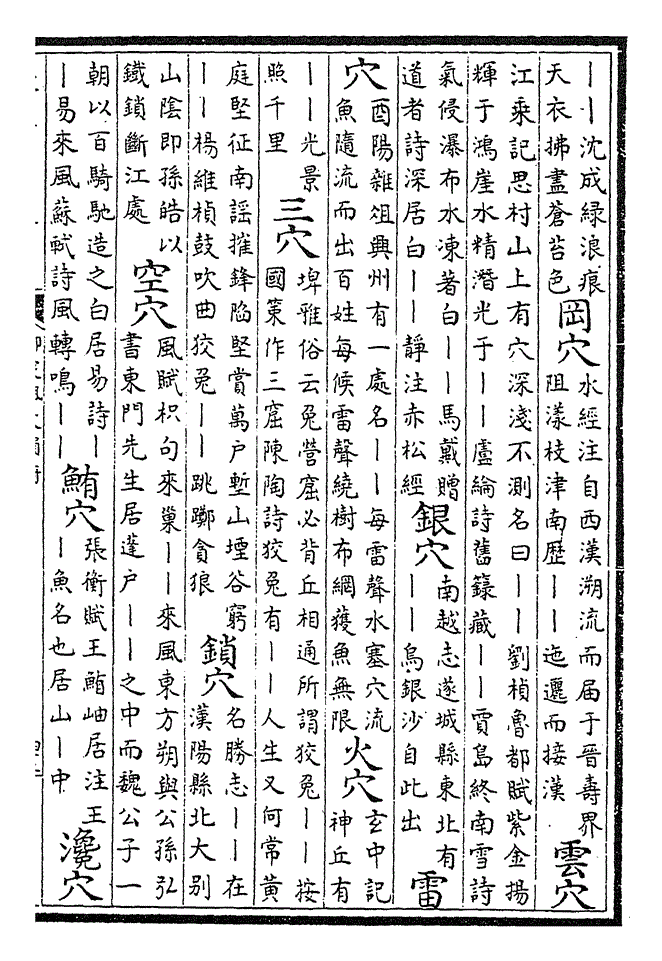 ——沈成綠浪痕
天衣拂盡蒼苔色
岡穴
水經注自西漢溯流而届于晉壽界
阻漾枝津南歷——迤邐而接漢
雲穴
江乘記思村山上有穴深淺不測名曰——劉楨魯都賦紫金揚
輝于鴻崖水精潛光于——盧綸詩舊籙藏——賈島終南雪詩
氣侵瀑布水凍著白——馬戴贈
道者詩深居白——靜注赤松經
銀穴
南越志遂城縣東北有
——烏銀沙自此出
雷
穴
酉陽雜俎興州有一處名——每雷聲水塞穴流
魚隨流而出百姓每候雷聲繞樹布網獲魚無限
火穴
玄中記
神丘有
——光景
照千里
三穴
埤雅俗云兔營窟必背丘相通所謂狡兔——按
國策作三窟陳陶詩狡兔有——人生又何常黃
庭堅征南謡摧鋒陷堅賞萬户塹山堙谷窮
——楊維楨鼓吹曲狡兔——跳躑貪狼
鎖穴
名勝志——在
漢陽縣北大别
山陰即孫皓以
鐵鎖斷江處
空穴
風賦枳句來巢——來風東方朔與公孫弘
書東門先生居蓬户——之中而魏公子一
朝以百騎馳造之白居易詩—
—易來風蘇軾詩風轉鳴——
鮪穴
張衡賦王鮪岫居注王
—魚名也居山—中
瀺穴